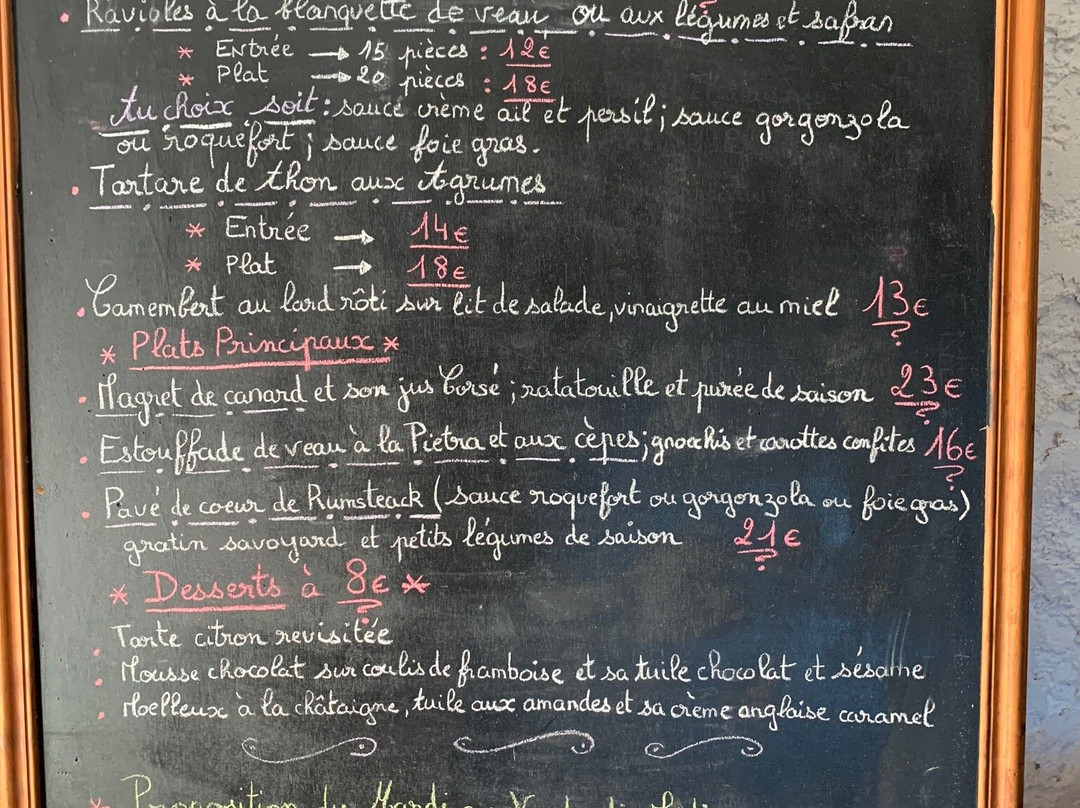 Ravioles à la blanquette de veau ou aux légumes et safran
* Entrée → 15 pièces : 12€
* Plat → 20 pièces : 18€
Au choix soit : sauce crème ail et persil ; sauce gorgonzola
ou roquefort ; sauce foie gras.
• Tartare de thon aux Agrumes
* Entrée → 14€
* Plat → 18€
• Camembert au lard rôti sur lit de salade, vinaigrette au miel 13€
* Plats Principaux *
• Magret de canard et son jus Corsé ; ratatouille et purée de saison 23€
• Estouffade de veau à la Pietra et aux cèpes ; gnocchis et carottes confites 16€
• Pavé de coeur de Rumsteack (sauce roquefort ou gorgonzola ou foie gras)
gratin savoyard et petits légumes de saison 21€
* Desserts à 8€ *
• Tarte citron revisitée
• Mousse chocolat sur coulis de framboise et sa tuile chocolat et sésame
• Moelleux à la châtaigne, tuile aux amandes et sa crème anglaise caramel
* Proposition du Mardi